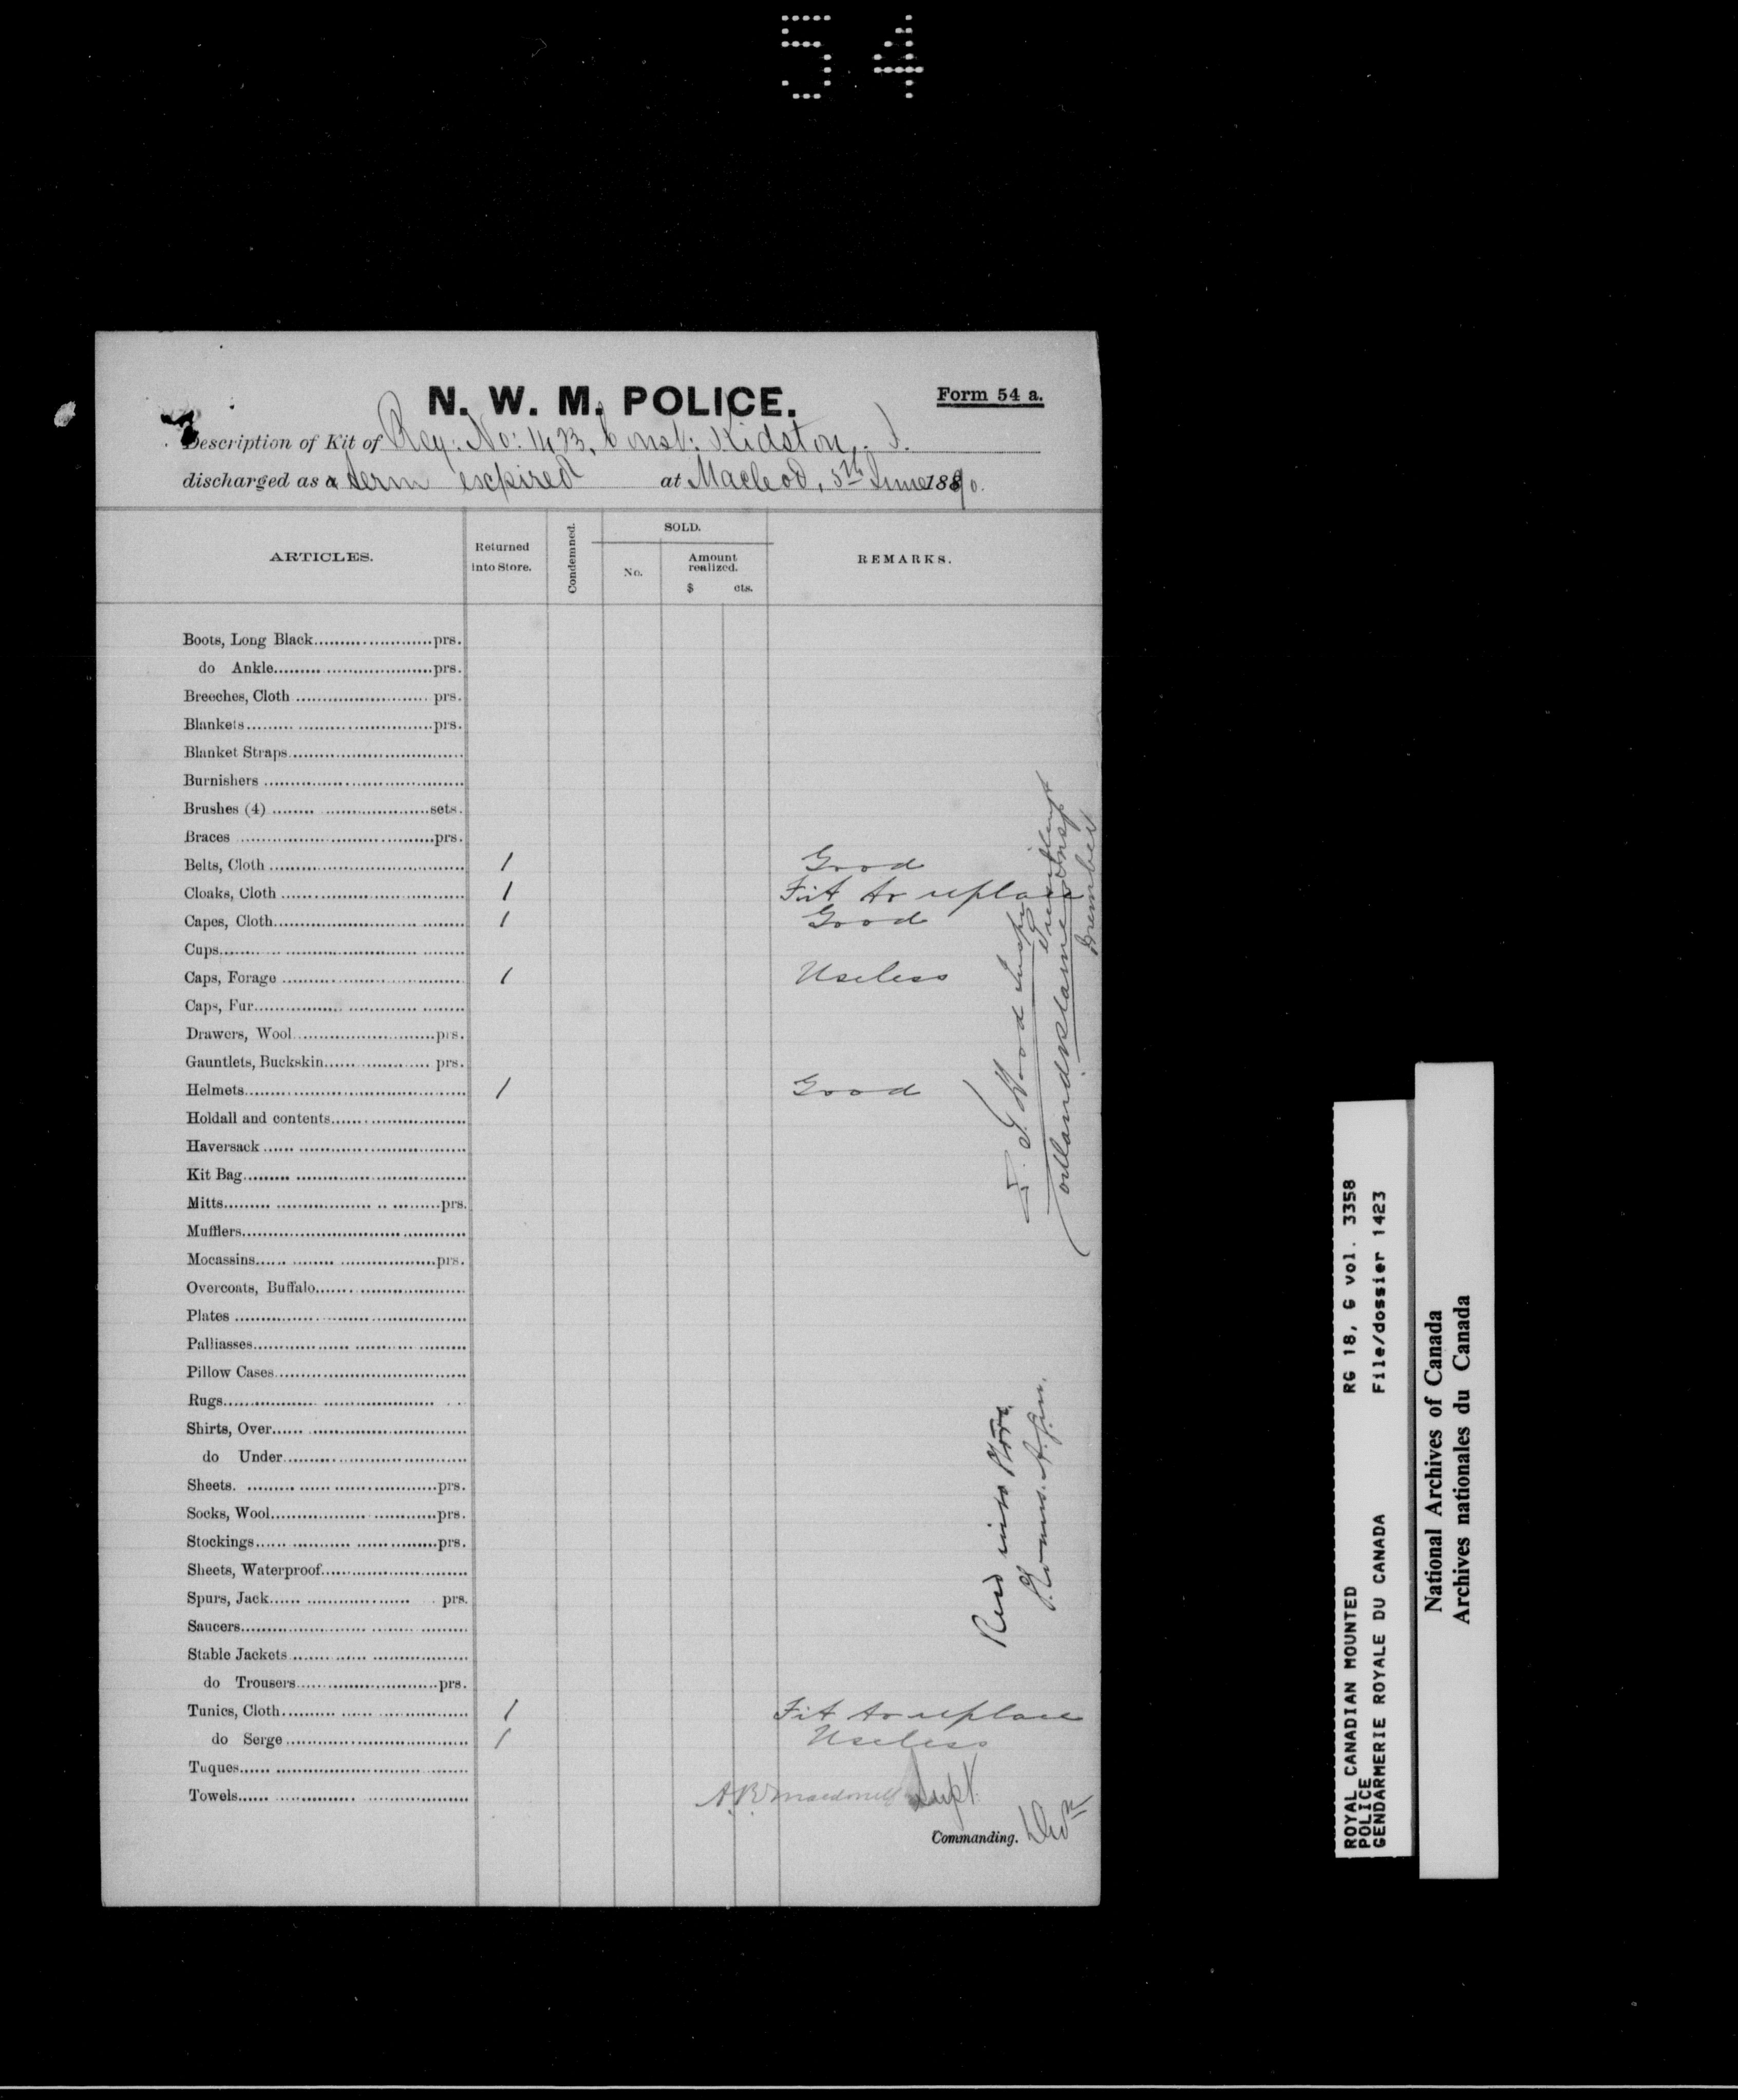 54
N. W. M. POLICE.
Form 54 a.
Description of Kit of Reg: No: 1423, Const: Kidston, J.
discharged as a term expired at Macleod, 5th June 1890.
ARTICLES.
Returned into Store.
Condemned.
SOLD.
No.
Amount realized.
$ cts.
REMARKS.
Boots, Long Black prs.
do Ankle prs.
Breeches, Cloth prs.
Blankets prs.
Blanket Straps
Burnishers
Brushes (4) sets.
Braces prs.
Belts, Cloth 1 Good
Cloaks, Cloth 1 Fit to replace
Capes, Cloth 1 Good
Cups
Caps, Forage 1 Useless
Caps, Fur
Drawers, Wool prs.
Gauntlets, Buckskin prs.
Helmets 1 Good
Holdall and contents
Haversack
Kit Bag
Mitts prs.
Mufflers
Mocassins prs.
Overcoats, Buffalo
Plates
Palliasses
Pillow Cases
Rugs
Shirts, Over
do Under
Sheets. prs.
Socks, Wool prs.
Stockings prs.
Sheets, Waterproof
Spurs, Jack prs.
Saucers
Stable Jackets
do Trousers prs.
Tunics, Cloth 1 Fit to replace
do Serge 1 Useless
Tuques
Towels
Wood Insp
President
Member
Recd into Store
A.R. Macdonell Supt.
Commanding. Divn
ROYAL CANADIAN MOUNTED POLICE
GENDARMERIE ROYALE DU CANADA
RG 18, G vol. 3358
File/dossier 1423
National Archives of Canada
Archives nationales du Canada